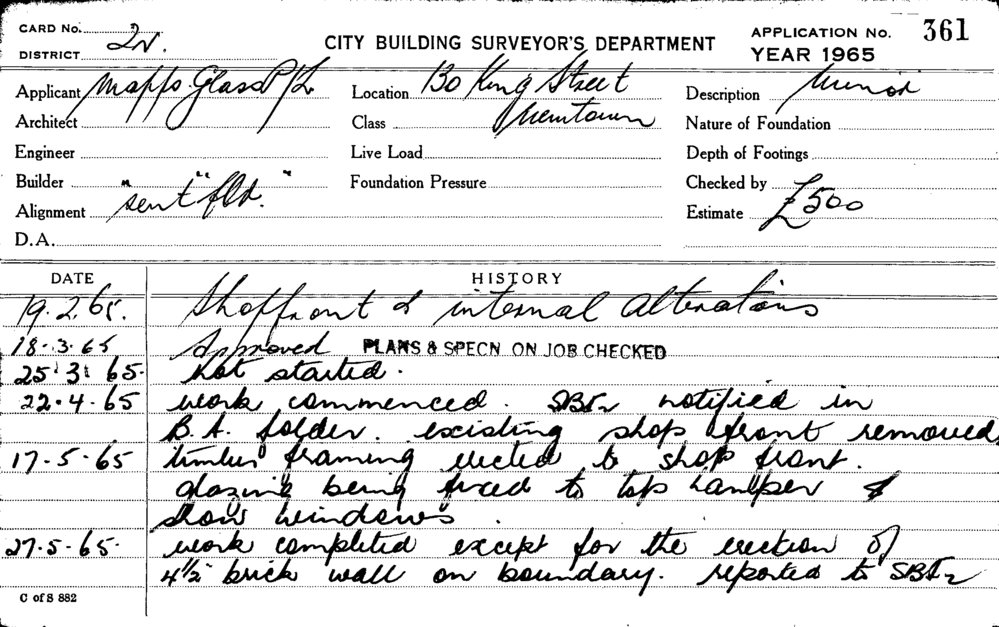 CARD No. 2N.
DISTRICT
CITY BUILDING SURVEYOR'S DEPARTMENT
APPLICATION No. 361
YEAR 1965
Applicant Mapps Glass P/L
Location 130 King Street
Newtown
Description Minor
Architect
Class
Nature of Foundation
Engineer
Live Load
Depth of Footings
Builder
Foundation Pressure
Checked by
Alignment "sent" fld."
Estimate £500
D.A.
DATE HISTORY
19.2.65. Shopfront & internal alterations
18.3.65 Approved PLANS & SPECN ON JOB CHECKED
25.3.65. Not started.
22.4.65 work commenced. notified in
B.A. folder. existing shop front removed.
17.5.65 timber framing erected to shop front.
glazing being fixed to top hamper &
show windows.
27.5.65. work completed except for the erection of
4½" brick wall on boundary. reported to
C of S 882